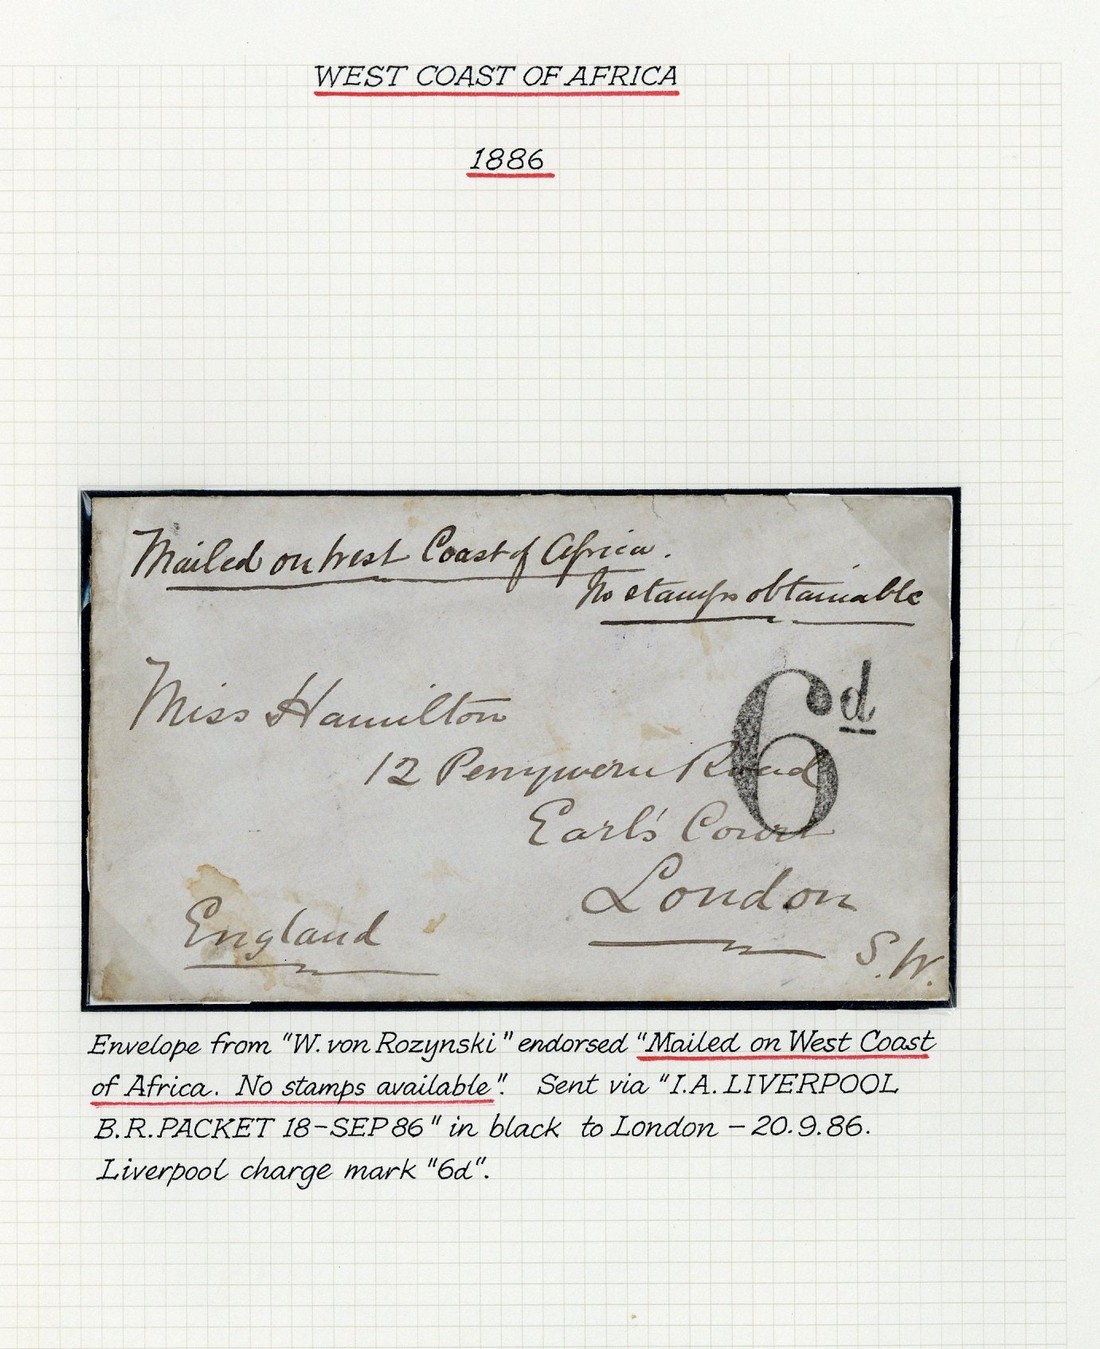 WEST COAST OF AFRICA
1886
Mailed on West Coast of Africa.
No stamps obtainable
Miss Hamilton
6d
12 Penywern Road
Earl's Court
London
England
S.W.
Envelope from "W. von Rozynski" endorsed "Mailed on West Coast
of Africa. No stamps available". Sent via "I.A. LIVERPOOL
B.R. PACKET 18-SEP 86" in black to London - 20.9.86.
Liverpool charge mark "6d".